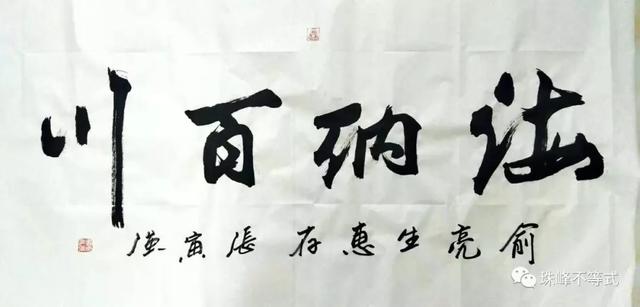 海纳百川
俞亮生惠存 张寅
珠峰不等式